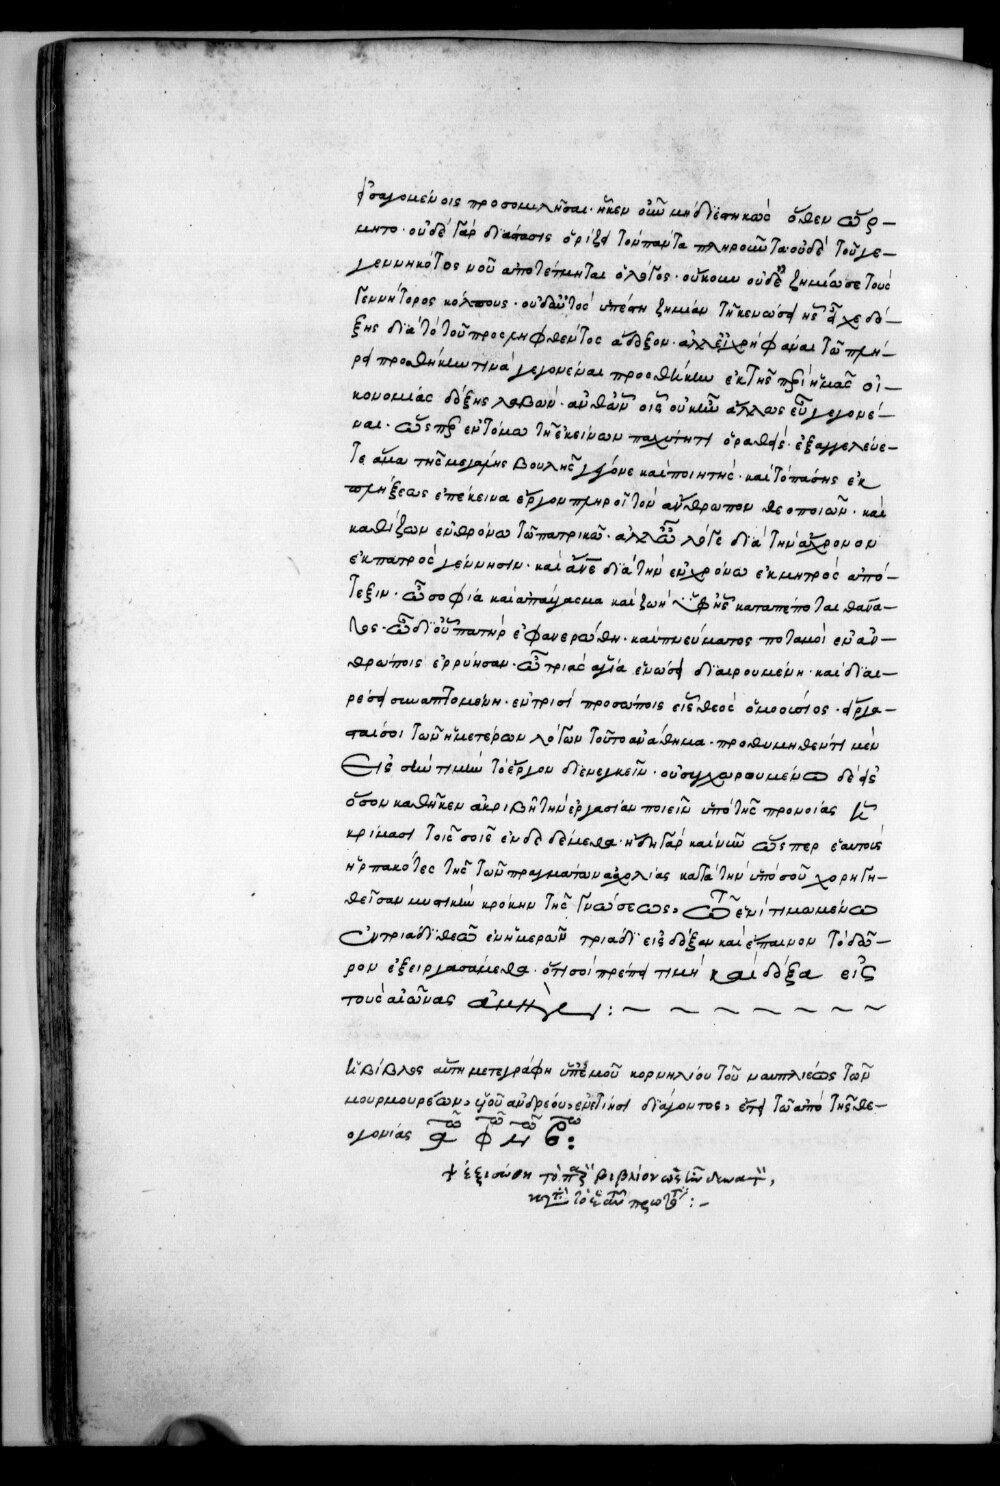 εἰσαγομένοις προσομιλῆσαι· ἧκεν οὖν μὴ διεστηκὼς ὅθεν ὥρ-
μητο· οὐδὲ γὰρ διάστασις ὁρίζει τὸν πάντα πληροῦντα οὐδὲ τοῦ γε-
γεννηκότος νοῦ ἀποτέτμηται ὁ λόγος· οὔκουν οὐδὲ ἐζημίωσε τοὺς
γεννήτορος κόλπους· οὐδ' αὐτὸς ὑπέστη ζημίαν τῇ κενώσει ἧς εἶχε δό-
ξης διὰ τὸ τοῦ προσληφθέντος ἄδοξον· ἀλλ' εἰ χρὴ φάναι τῷ πλή-
ρει προσθήκην τινὰ γεγονέναι προσθήκην ἐκ τῆς περὶ ἡμᾶς οἰ-
κονομίας δόξης λαβὼν· ἀνθ' ὧν οἷς οὐκ ἦν ἄλλως εὖ γεγονέ-
ναι· ὥσπερ ἐν τόμω τῇ ἐκείνων παχύτητι ὁραθεὶς· ἐξαγγελεύς
τε ἅμα τῆς μεγάλης βουλῆς γέγονε καὶ ποιητής· καὶ τὸ πάσης ἐκ
πλήξεως ἐπέκεινα ἔργον πληροῖ τὸν ἄνθρωπον θεοποιῶν· καὶ
καθίζων ἐν θρόνω τῶ πατρικῶ· ἀλλ' ὦ λόγε διὰ τὴν ἄχρονον
ἐκ πατρὸς γέννησιν· καὶ ἄνε διὰ τὴν ἐν χρόνω ἐκ μητρὸς ἀπό-
τεξιν· ὦ σοφία καὶ ἀπαύγασμα καὶ ζωὴ ὑφ' ἧς καταπέποται θάνα-
τος· ὦ δι' οὗ πατὴρ ἐφανερώθη· καὶ πνεύματος ποταμοὶ ἐν ἀν-
θρώποις ἐρρύησαν· ὦ τριὰς ἁγία ἑνώσει διαιρουμένη· καὶ διαι-
ρέσει συναπτομένη· ἐν τρισὶ προσώποις εἷς θεὸς ὁμοούσιος·
σοι τῶν ἡμετέρων λόγων τοῦτο ἀνάθημα· προθυμηθέντι μὲν
εἰς σὴν τιμὴν τὸ ἔργον διενεγκεῖν· οὐ συγχωρουμένω δὲ εἰς
ὅσον καθῆκεν ἀκριβῆ τὴν ἐργασίαν ποιεῖν ὑπὸ τῆς προνοίας
κρίμασι τοῖς σοῖς ἐνδεδέμεθα· ἤδη γὰρ καὶ νῦν ὥσπερ ἑαυτοὺς
ἡρπακότες τῆς τῶν πραγμάτων ἀσχολίας κατὰ τὴν ὑπὸ σοῦ χορηγη-
θεῖσαν μυστικὴν κρόκην τῆς γνώσεως, τῶ ἑνὶ τιμωμένω
ἐν τριάδι θεῶ ἐν ἡμερῶν τριάδι εἰς δόξαν καὶ ἔπαινον τὸ δῶ-
ρον ἐξειργασάμεθα· ὅτι σοὶ πρέπει τιμὴ καὶ δόξα εἰς
τοὺς αἰῶνας ἀμήν :~ ~ ~ ~ ~ ~ ~
Ἡ βίβλος αὕτη μετεγράφη ὑπ' ἐμοῦ κορνηλίου τοῦ ναυπλιέως τῶν
μουρμουρέων, υἱοῦ ἀνδρέου, ἐνετίησι διάγοντος, ἔτει τῶ ἀπὸ τῆς θε-
ογονίας ͵α φ μ β:
+ ἐξισώθη τὸ βιβλίον
πρωτ :-